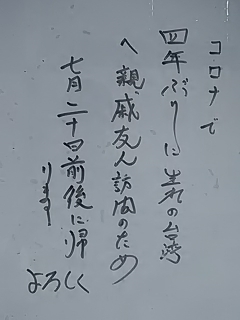 コロナで
四年ぶりに生れの台湾
へ親戚友人訪問のため
七月二十四前後に帰
ります
よろしく